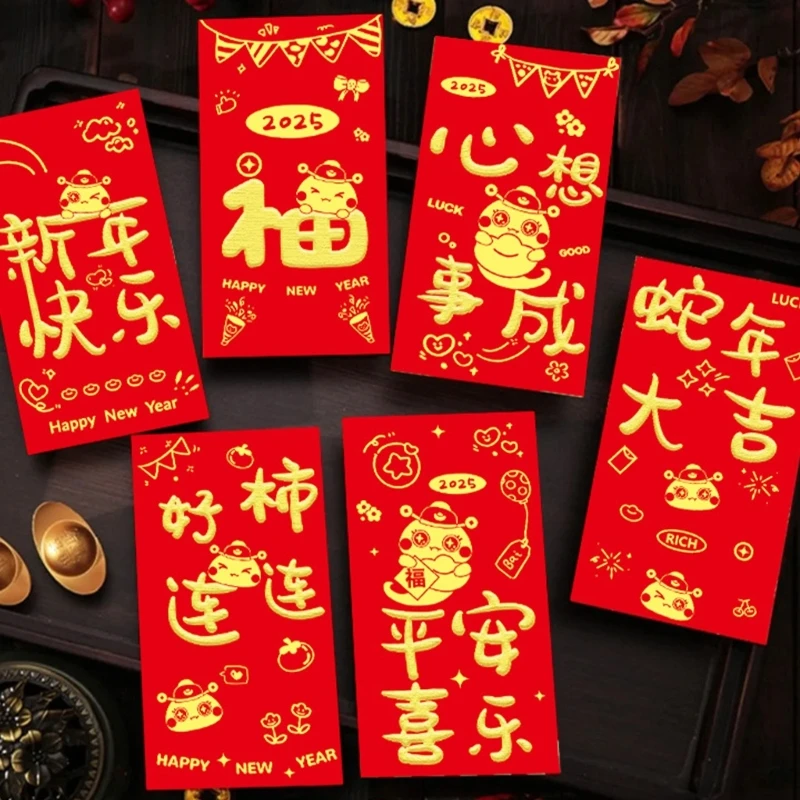 新年
快乐
Happy New Year
2025
福
HAPPY NEW YEAR
2025
心想
LUCK
GOOD
事成
LUCK
蛇年
大吉
RICH
好柿
连连
HAPPY NEW YEAR
2025
福
平安
喜乐